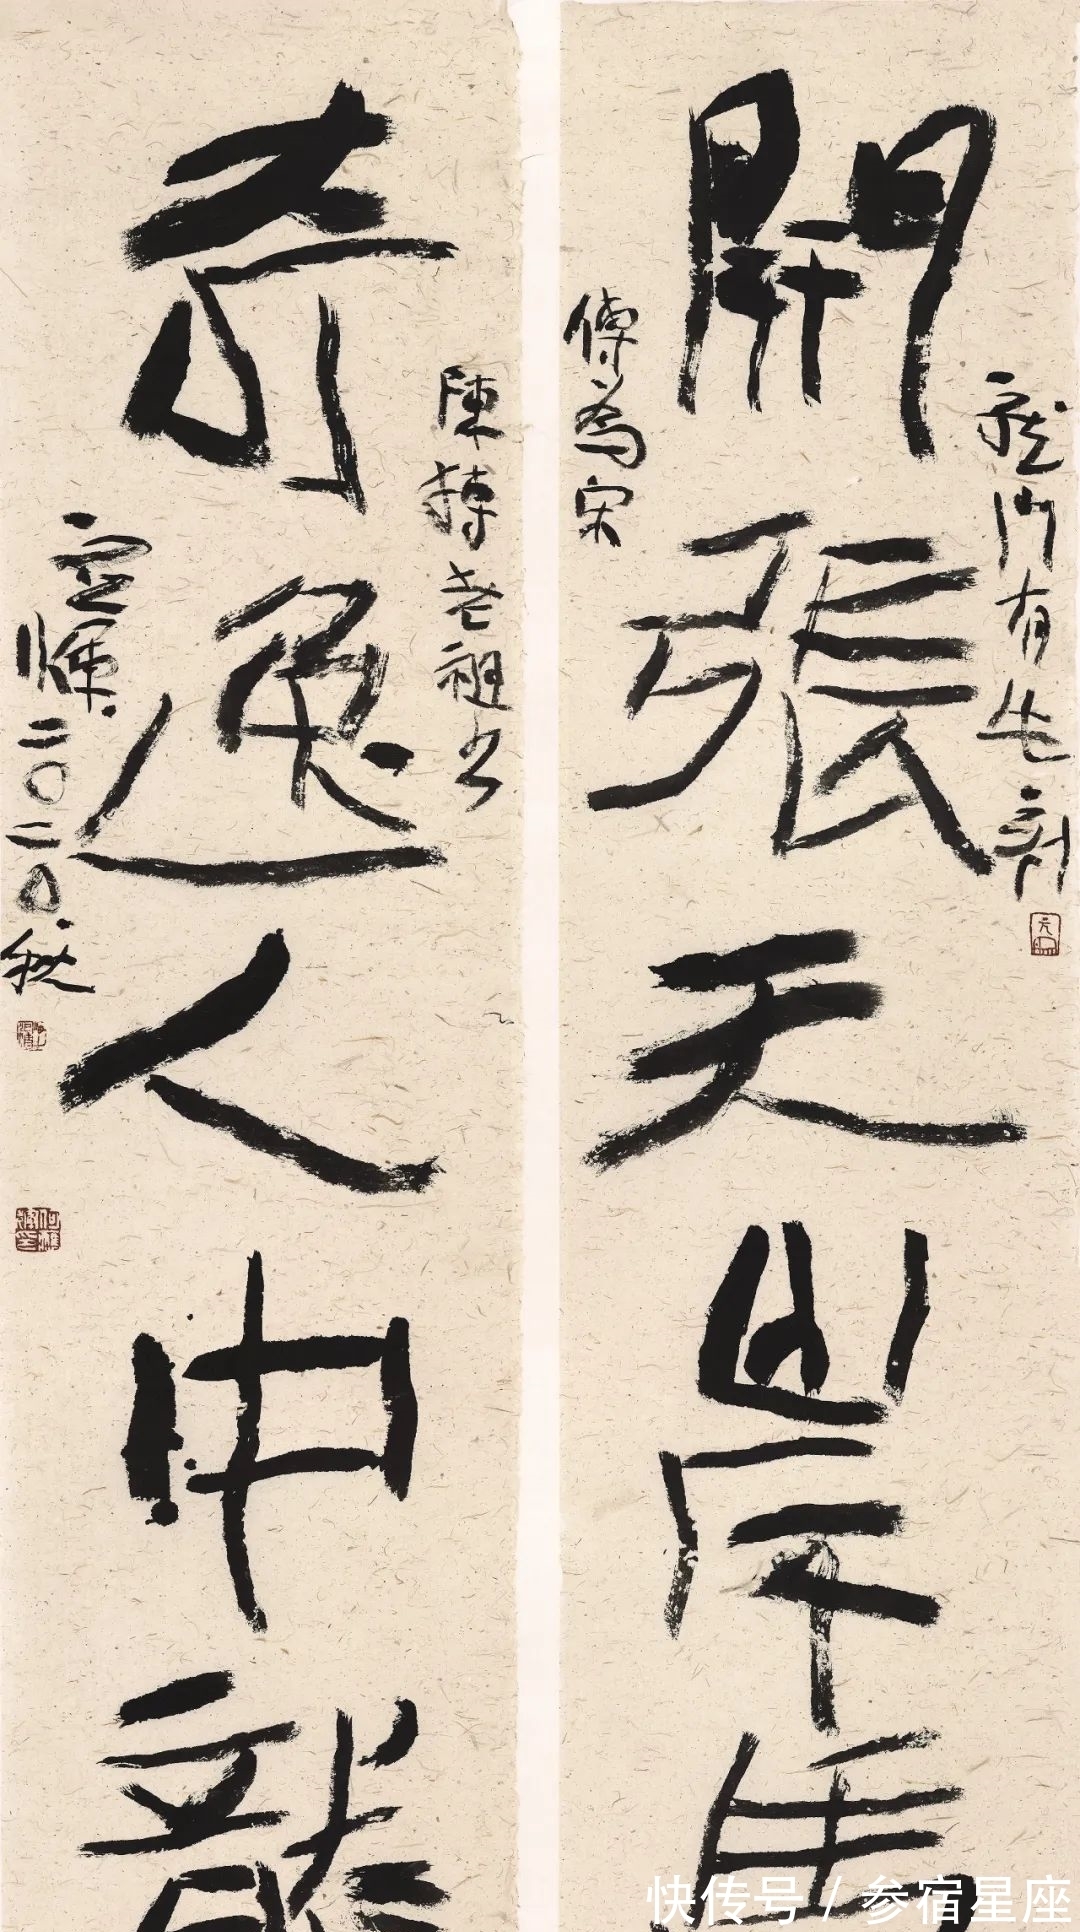 龍門有此刻
開張天岸馬
傳為宋
陳摶老祖书
奇逸人中龍
二〇二〇秋
快传号 / 参宿星座